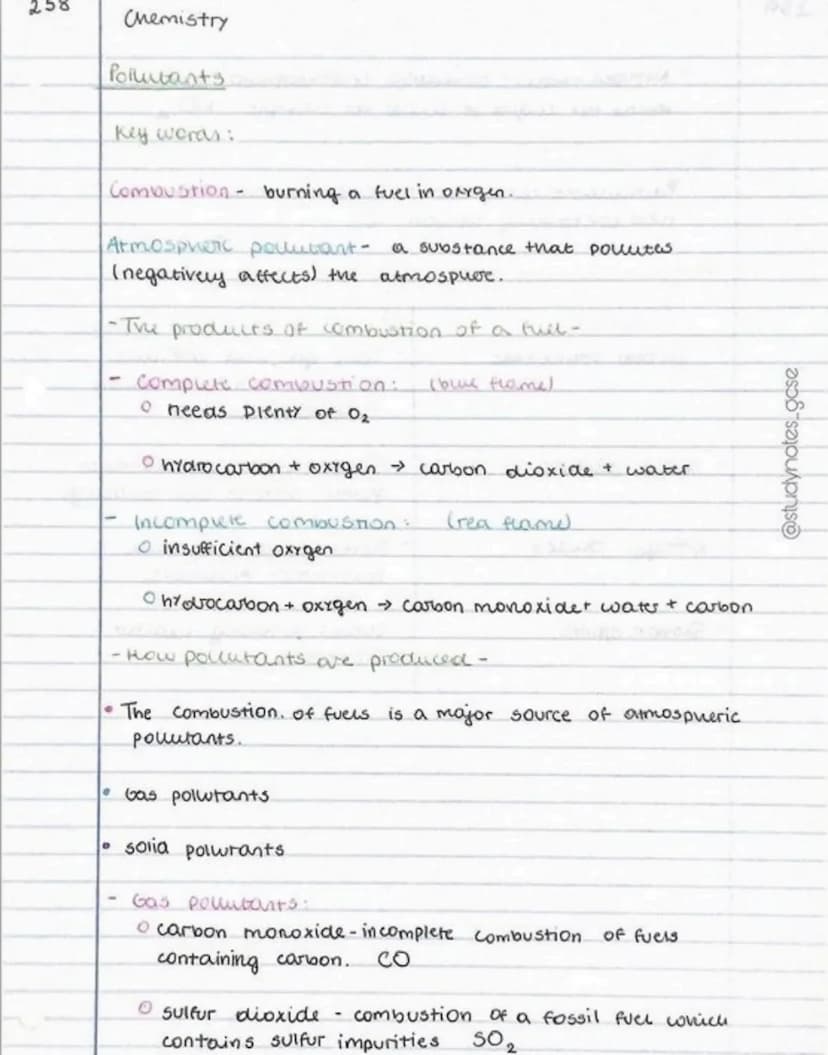 258
Chemistry
Pollutants
Key words:
Combustion - burning a fuel in oxygen.
Atmospheric pollutant - a substance that pollutes
(negatively affects) the atmosphere.
- The products of combustion of a fuel -
- Complete combustion: (blue flame)
○ needs plenty of O₂
○ hydrocarbon + oxygen → carbon dioxide + water
- Incomplete combustion: (red flame)
○ insufficient oxygen
○ hydrocarbon + oxygen → carbon monoxide + water + carbon
- How pollutants are produced -
• The combustion. of fuels is a major source of atmospheric
pollutants.
• Gas pollutants
• solid pollutants
- Gas pollutants:
○ carbon monoxide - incomplete combustion of fuels
containing carbon. CO
○ sulfur dioxide - combustion of a fossil fuel which
contains sulfur impurities SO₂
@studynotes_gcse